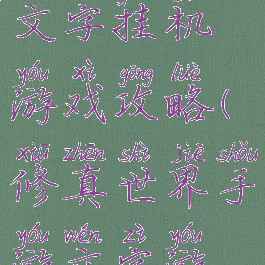 文字挂机
yóu xì gōng lüè
游戏攻略(
xiū zhēn shì jiè shǒu
修真世界手
yóu wén zì yóu
游文字游